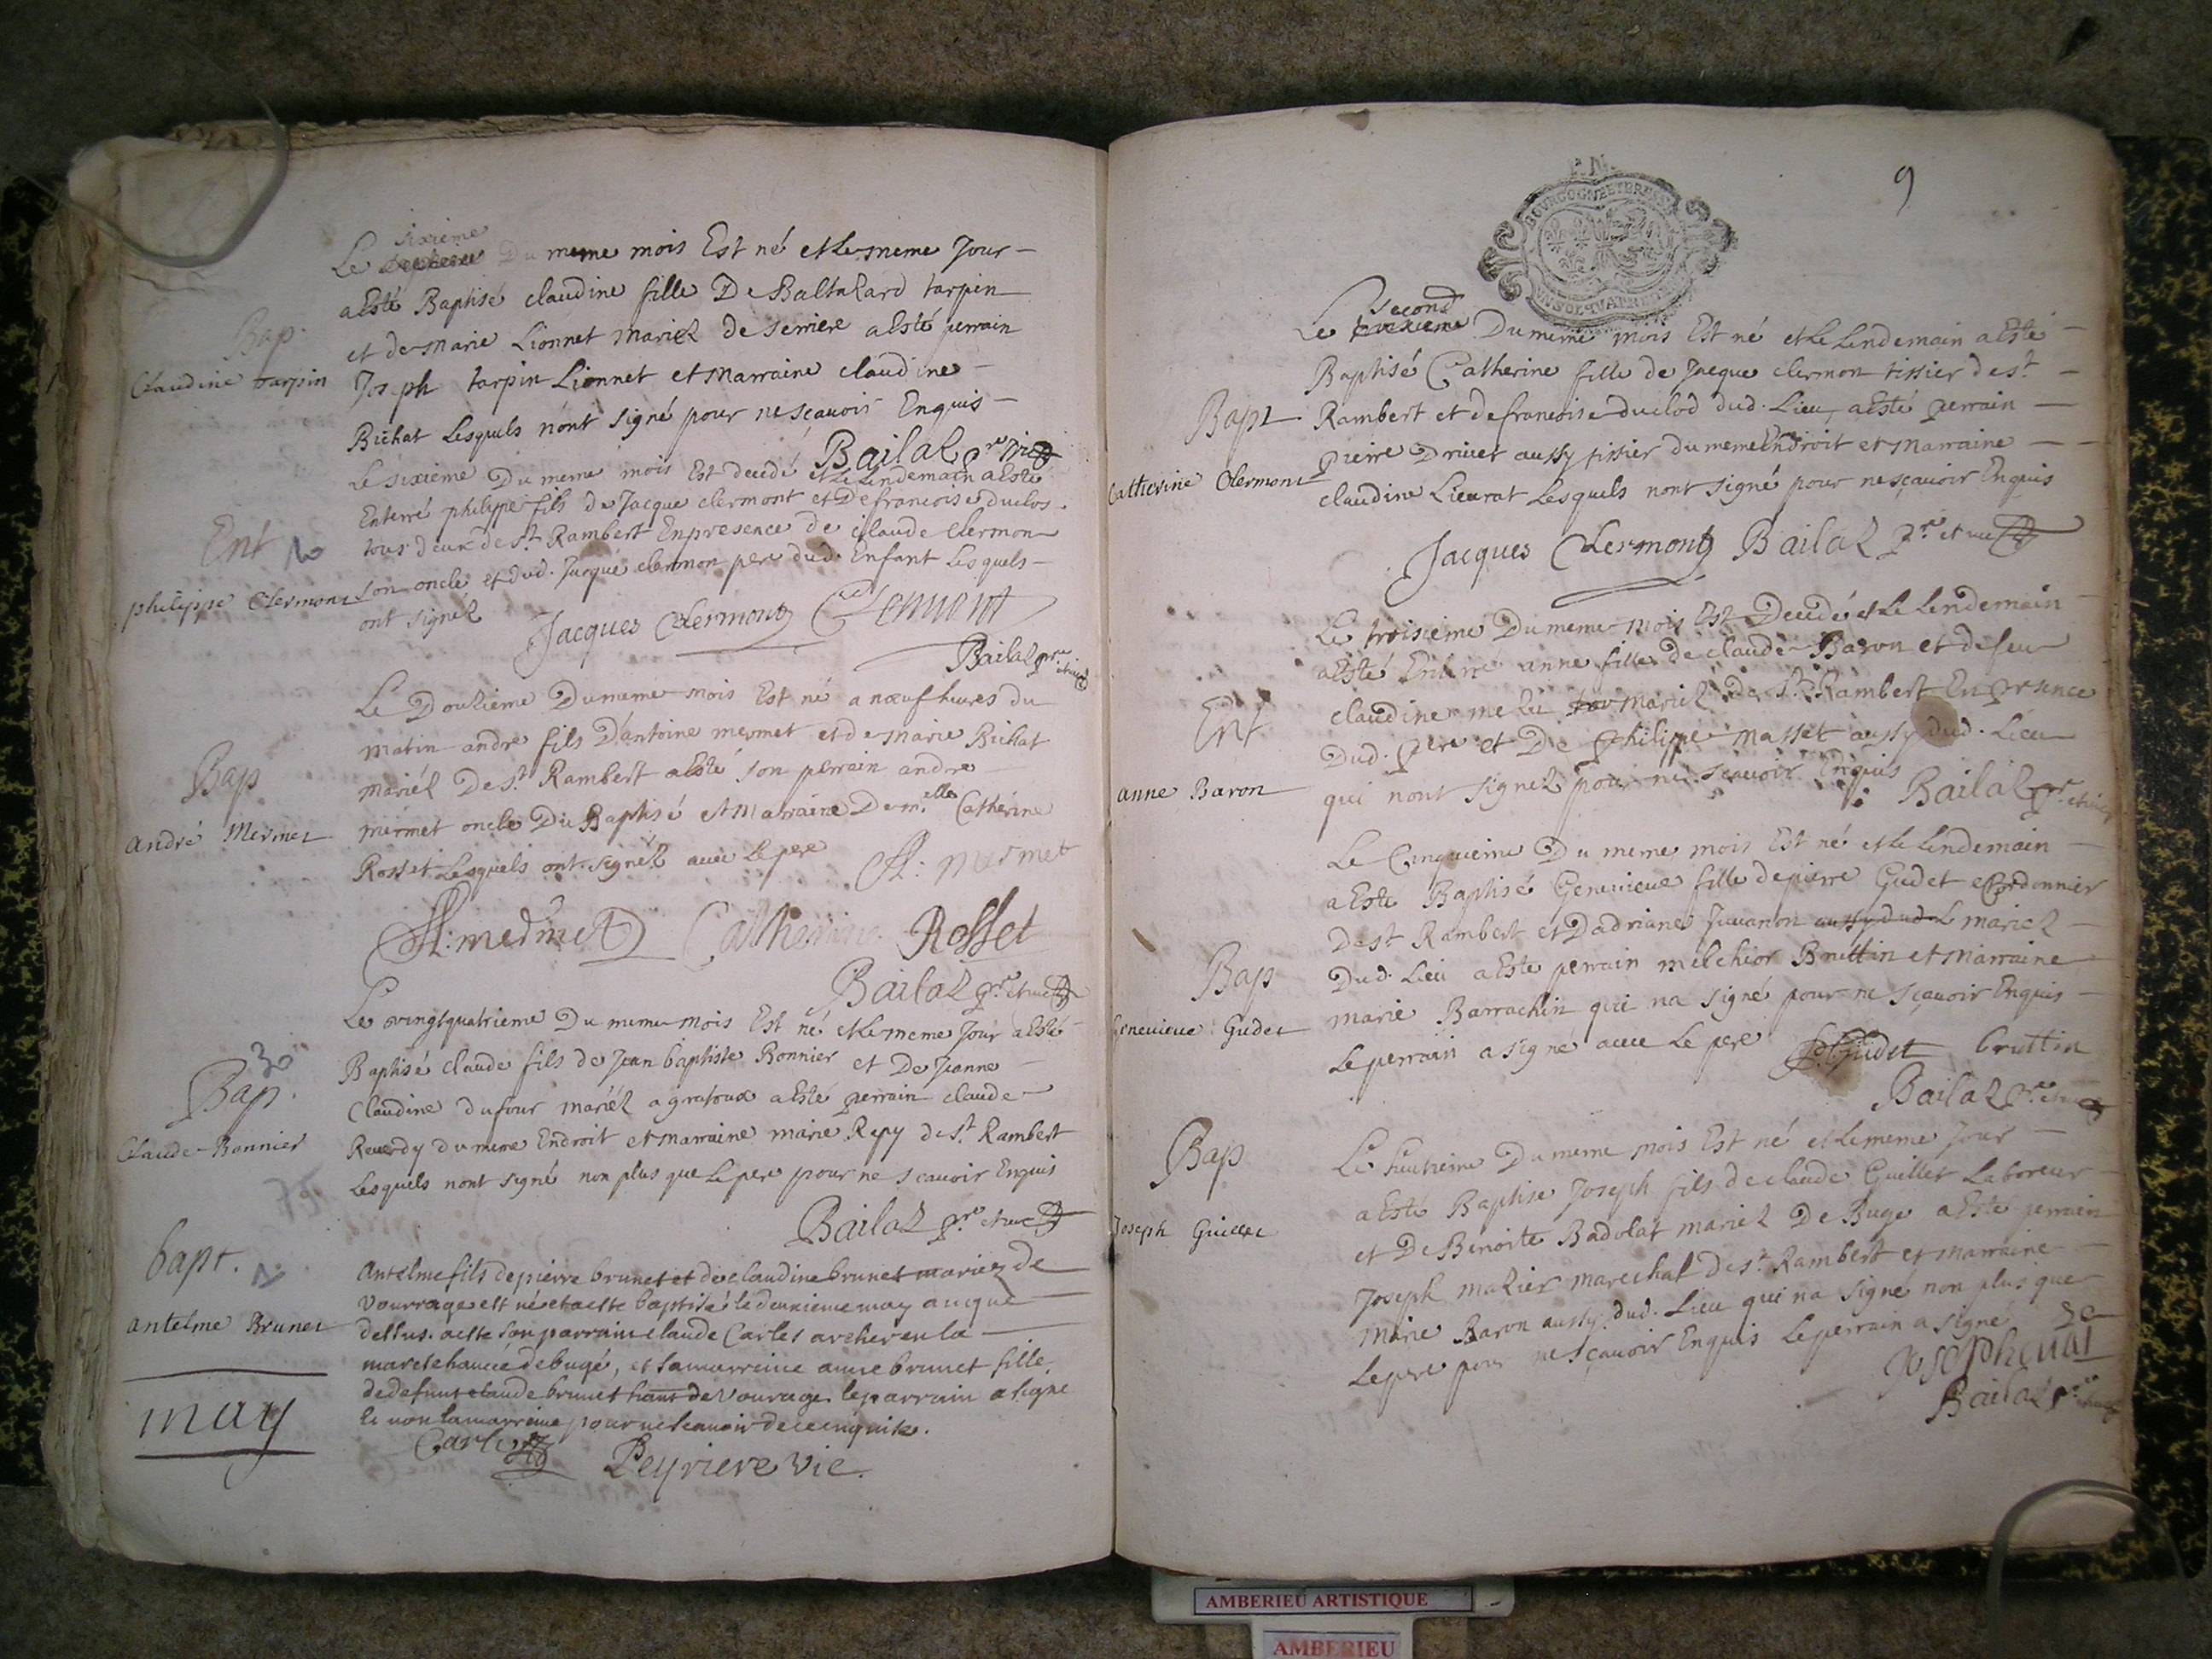 sixieme
Le Du meme mois Est né et Le meme Jour
a Esté Baptisé claudine fille De Baltazard tarpin
et de marie Lionnet mariez de serriere a Esté perrain
Bap.
Claudine tarpin
Joseph tarpin Lionnet et marraine claudine
Bichat Lesquels n'ont signé pour ne sçavoir Enquis
Bailaz pre
Le sixieme Du meme mois Est decedé et Le Lendemain a Esté
Enterré philippe fils de Jacque clermont et De francoise duclos
Ent
tous deux de st Rambert En presence de claude clermon
philippe Clermont
son oncle et dud. Jacque clermon pere dud. Enfant Lesquels
ont signéz
Jacques Clermont Clermont
Bailaz pre
Le Douzieme Du meme mois Est né a nœuf heures du
matin andre fils D'antoine mermet et de marie Bichat
Bap
mariéz De st Rambert a Esté son perrain andre
andré Mermet
mermet oncle Du Baptisé et Marraine Demelle Catherine
Rosset Lesquels ont signéz avec Le pere
A: mermet
A: mermet Catherine Rosset
Bailaz pre et vic
Le vingtquatrieme Du meme mois Est né et Le meme Jour a Esté
30
Bap.
Baptisé claude fils de Jean baptiste Bonnier et De Jeanne
Claudine dufour mariéz a gratoux a Esté perrain claude
Claude Bonnier
Reverdy du meme Endroit et marraine marie Repy de st Rambert
Lesquels nont signé non plus que Le pere pour ne scavoir Enquis
75
Bailaz pre et vic
bapt.
antelme fils de pierre brunet et de claudine brunet mariez de
Vourrage est né et a este baptisé le deuxieme may au que
antelme Brunet
dessus. a este son parrain claude Carles archer en la
marechaucée de bugé, et la marreine anne brunet fille
de defunt claude brunet de Vourage le parrain a signe
may
et non la marreine pour ne scavoir de ce enquise.
Carles
Peyriere vic.
9
BOVRGOGNE ET BRESSE
second
Le troisieme Du meme mois Est né et Le Lendemain a Esté
Baptisé Catherine fille de Jacque clermon tissier de st
Bapt
Rambert et de francoise duclod dud. Lieu, a Esté perrain
Catherine Clermont
pierre Drivet aussy tissier du meme Endroit et marraine
claudine Lieurat Lesquels nont signé pour ne sçavoir Enquis
Jacques Clermont Bailaz pre et vic
Le troisieme Du meme mois Est Decedé et Le Lendemain
a Esté Enterré anne fille de claude Baron et de feue
Ent
claudine mariéz De st Rambert En presence
Dud. pere et De philippe masset aussy dud. Lieu
anne Baron
qui nont signéz pour ne scavoir Enquis
Bailaz pre et vic
Le Cinquieme Du meme mois Est né et Le Lendemain
a Esté Baptisé Genevieve fille de pierre Gudet Cordonnier
De st Rambert et Dadriane Juvanon aussy dud. L mariez
Bap
Dud. Lieu a Este perrain melchior Bruttin et Marraine
Genevieve Gudet
marie Barrachin qui na signé pour ne sçavoir Enquis
Le perrain a signé avec Le pere P. Gudet bruttin
Bailaz pre et vic
Bap
Le huitieme Du meme mois Est né et Le meme Jour
a Esté Baptisé Joseph fils de claude Guillet Laboreur
Joseph Guillet
et De Benoite Badolat mariez De Buge a Esté perrain
Joseph mazier marechal de st Rambert et marraine
marie Baron aussy dud. Lieu qui na signé non plus que
Le pere pour ne sçavoir Enquis Le perrain a signé
Bailaz pre
AMBERIEU ARTISTIQUE
AMBERIEU